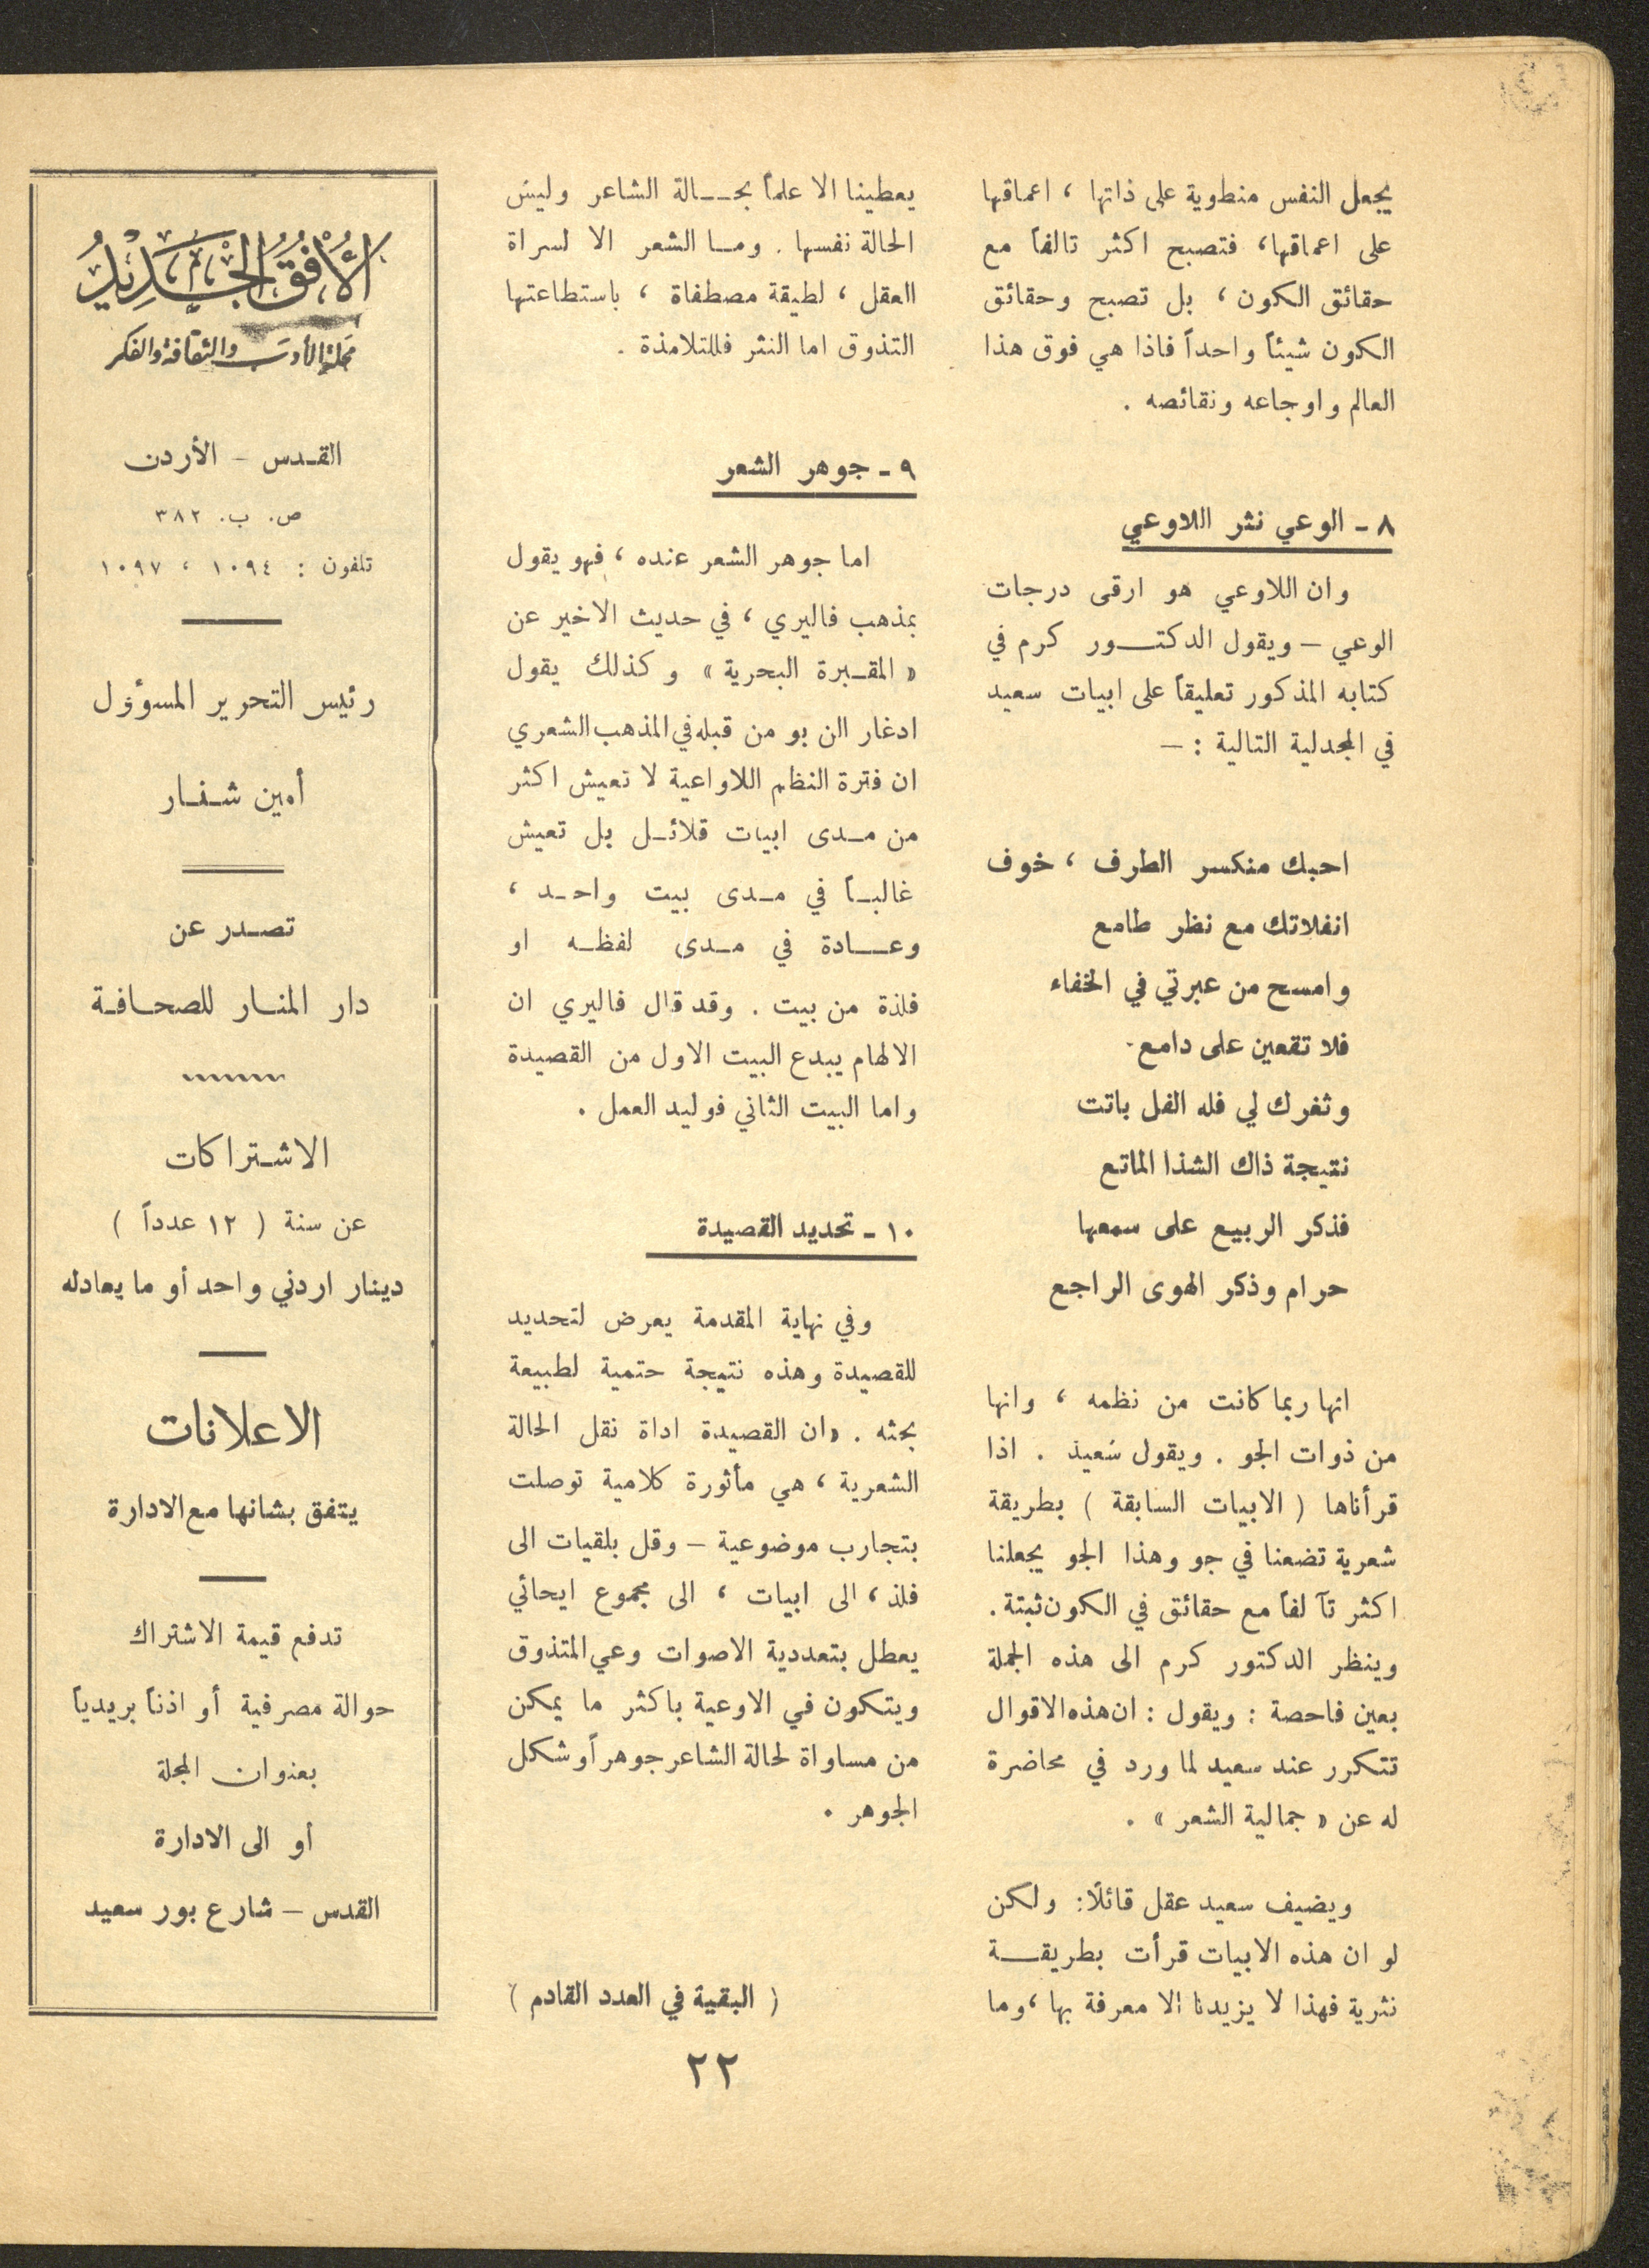 يجعل النفس منطوية على ذاتها ، اعماقها
على اعماقها، فتصبح اكثر تالفاً مع
حقائق الكون ، بل تصبح وحقائق
الكون شيئاً واحداً فاذا هي فوق هذا
العالم واوجاعه ونقائصه .
٨ - الوعي نثر اللاوعي
وان اللاوعي هو ارقى درجات
الوعي – ويقول الدكتـــور كرم في
كتابه المذكور تعليقاً على ابيات سعيد
في المجدلية التالية : –
احبك منكسر الطرف ، خوف
انفلاتك مع نظر طامع
وامسح من عبرتي في الخفاء
فلا تقعين على دامع
وثغرك لي فله الفل باتت
نتيجة ذاك الشذا الماتع
فذكر الربيع على سمعها
حرام وذكر الهوى الراجع
انها ربما كانت من نظمه ، وانها
من ذوات الجو . ويقول سعيد . اذا
قرأناها ( الابيات السابقة ) بطريقة
شعرية تضعنا في جو وهذا الجو يجعلنا
اكثر تآ لفاً مع حقائق في الكون ثبتة .
وينظر الدكتور كرم الى هذه الجملة
بعين فاحصة : ويقول : ان هذه الاقوال
تتكرر عند سعيد لما ورد في محاضرة
له عن « جمالية الشعر » .
ويضيف سعيد عقل قائلًا : ولكن
لو ان هذه الابيات قرأت بطريقـــة
نثرية فهذا لا يزيدنا الا معرفة بها ، وما
يعطينا الا علماً بحـــالة الشاعر وليس
الحالة نفسها . ومـا الشعر الا لسراة
العقل ، لطيقة مصطفاة ، باستطاعتها
التذوق اما النثر فللتلامذة .
٩ - جوهر الشعر
اما جوهر الشعر عنده ، فهو يقول
بمذهب فاليري ، في حديث الاخير عن
« المقـبرة البحرية » وكذلك يقول
ادغار الن بو من قبله في المذهب الشعري
ان فترة النظم اللاواعية لا تعيش اكثر
من مـدى ابيات قلائـل بل تعيش
غالبـاً في مـدى بيت واحـد ،
وعـــادة في مـدى لفظـه او
فلذة من بيت . وقد قال فاليري ان
الالهام يبدع البيت الاول من القصيدة
واما البيت الثاني فوليد العمل .
١٠ - تحديد القصيدة
وفي نهاية المقدمة يعرض لتحديد
للقصيدة وهذه نتيجة حتمية لطبيعة
بحثه . «ان القصيدة اداة نقل الحالة
الشعرية ، هي مأثورة كلامية توصلت
بتجارب موضوعية – وقل بلقيات الى
فلذ ، الى ابيات ، الى مجموع ايحائي
يعطل بتعددية الاصوات وعي المتذوق
ويتكون في الاوعية باكثر ما يمكن
من مساواة لحالة الشاعر جوهراً وشكل
الجوهر .
( البقية في العدد القادم )
الأفق الجديد
مجلة الأدب والثقافة والفكر
القـدس – الأردن
ص. ب. ٣٨٢
تلفون : ١٠٩٤ ، ١٠٩٧
رئيس التحرير المسوؤل
أمين شـنـار
تصـدر عن
دار المنـار للصحـافـة
الاشـتراكات
عن سنة ( ١٢ عدداً )
دينار اردني واحد أو ما يعادله
الاعلانات
يتفق بشانها مع الادارة
تدفع قيمة الاشتراك
حوالة مصرفية أو اذناً بريدياً
بعنوان المجلة
أو الى الادارة
القدس – شارع بور سعيد
٢٢